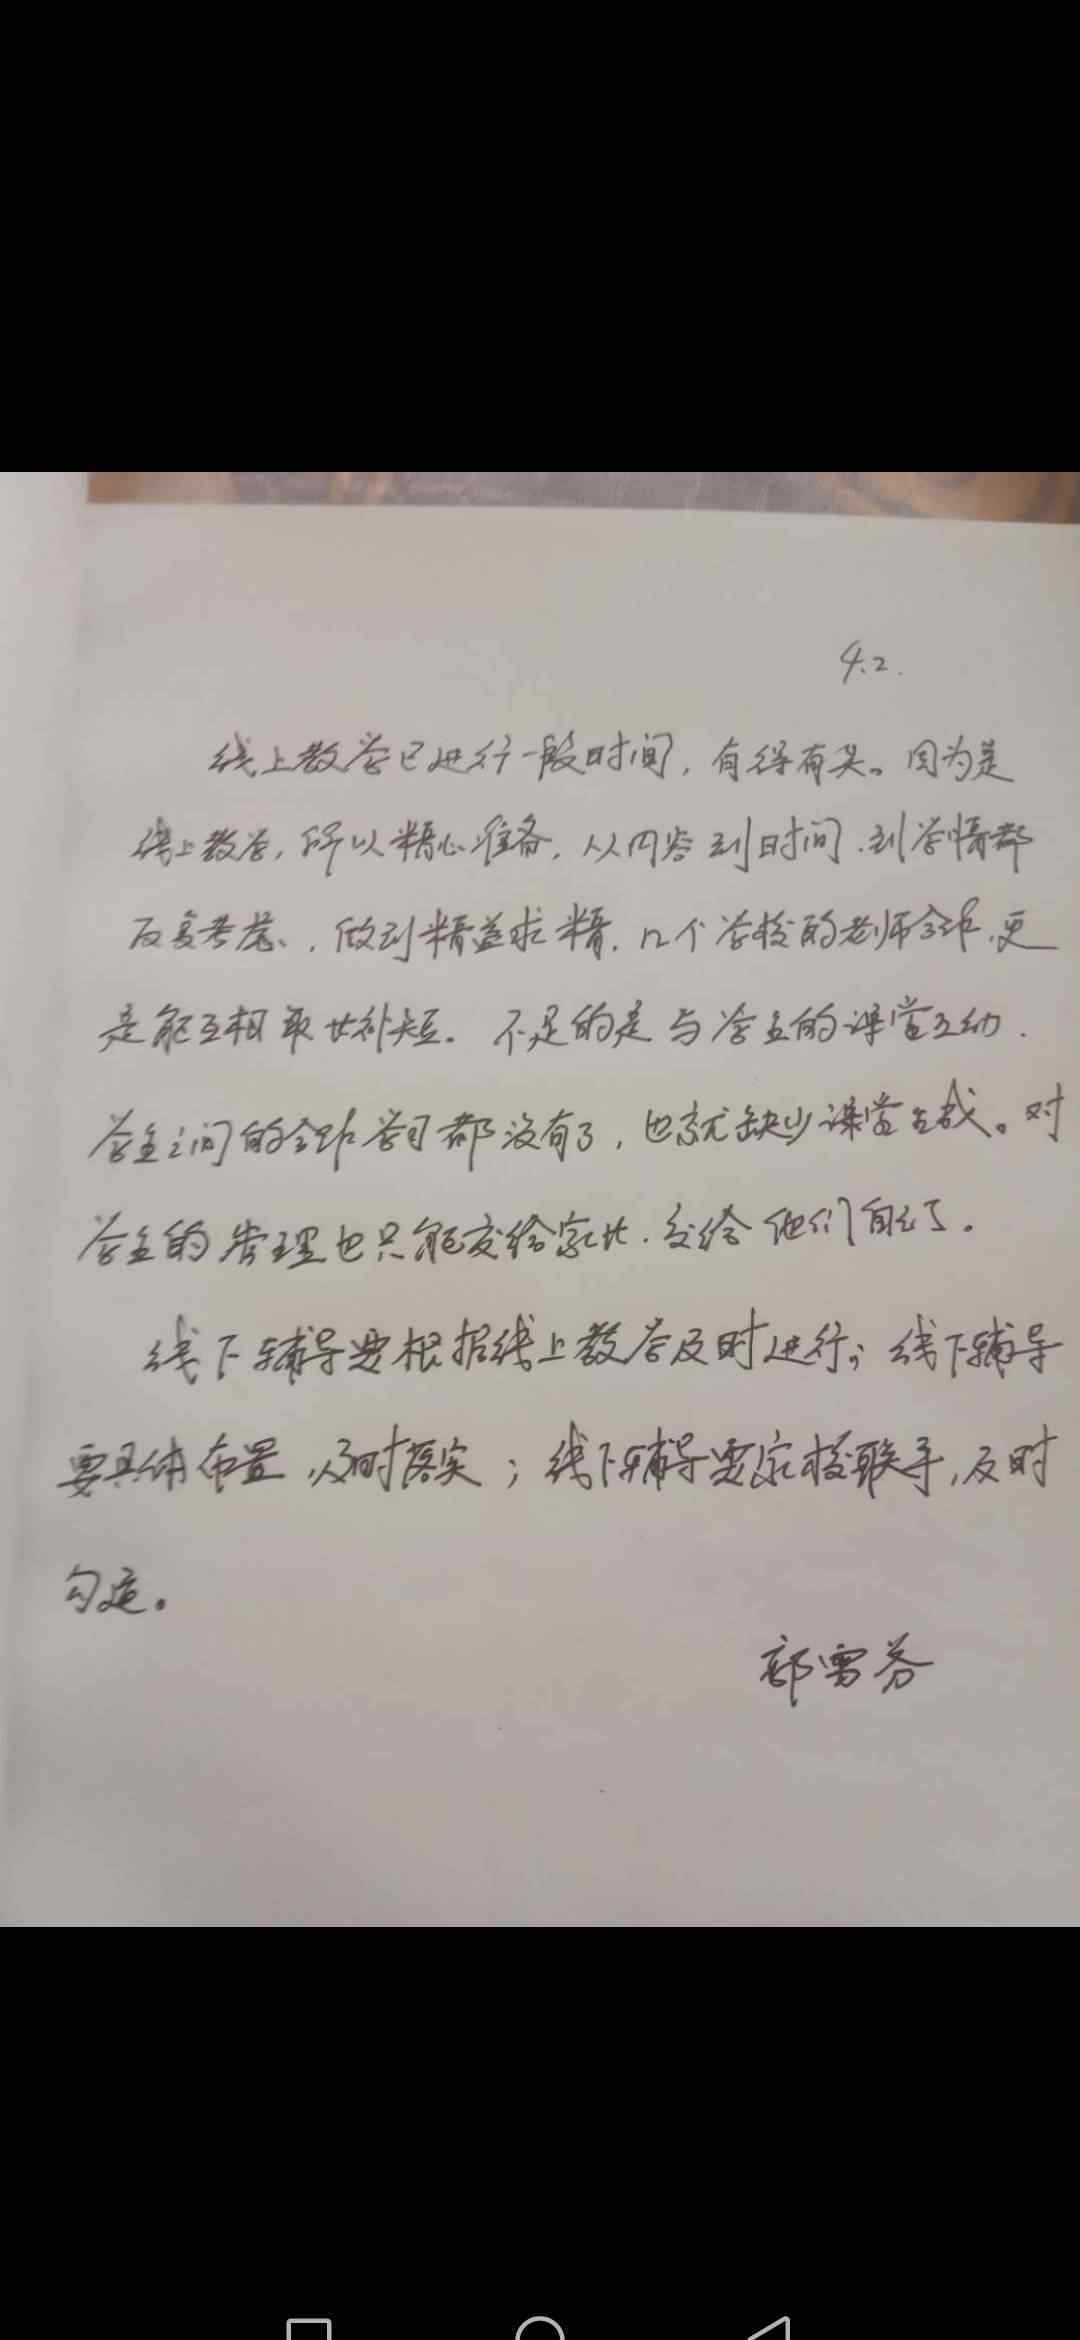 4.2.
线上教学已进行一段时间，有得有失。因为是
线上教学，所以精心准备，从内容到时间、到学情都
反复考虑、，做到精益求精，几个学校的老师合作，更
是能互相取长补短。不足的是与学生的课堂互动、
学生之间的合作学习都没有了，也就缺少课堂生成。对
学生的管理也只能交给家长、交给他们自己了。
线下辅导要根据线上教学及时进行；线下辅导
要具体布置，及时落实；线下辅导要家校联手，及时
勾通。
郭雪芬